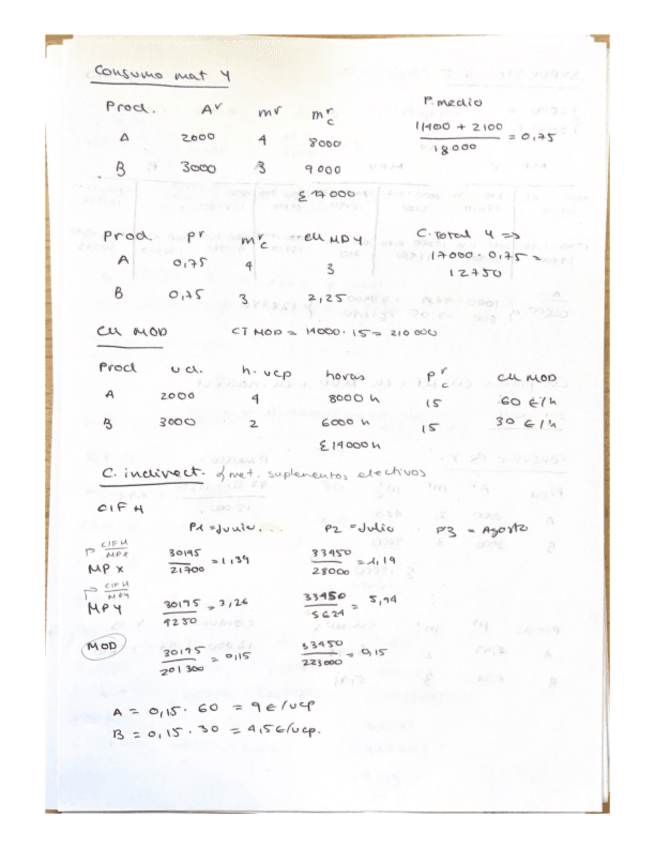 Consumo mat Y
Prod. Ar mr mrc
A 2000 4 8000
B 3000 3 9000
Σ 17000
P. medio
11400 + 2100
18000
= 0,75
Prod. pr mrc CU MDY
A 0,75 4 3
B 0,75 3 2,25
C. Total Y =>
17000 · 0,75 =
12750
CU MOD CT MOD = 14000 · 15 = 210 000
Prod ud. h. ucp horas prc CU MOD
A 2000 4 8000 h 15 60 €/h
B 3000 2 6000 h 15 30 €/h
Σ 14000 h
C. indirect. met. suplementos electivos
CIF H
P1 = Junio... P2 = Julio P3 = Agosto
CIF H
MPX
MP X 30195 / 21700 = 1,39 33450 / 28000 = 1,19
CIF H
MPY
MPY 30195 / 9250 = 3,26 33450 / 5624 = 5,94
MOD 30195 / 201300 = 0,15 33450 / 223000 = 0,15
A = 0,15 · 60 = 9 €/ucp
B = 0,15 · 30 = 4,5 €/ucp.